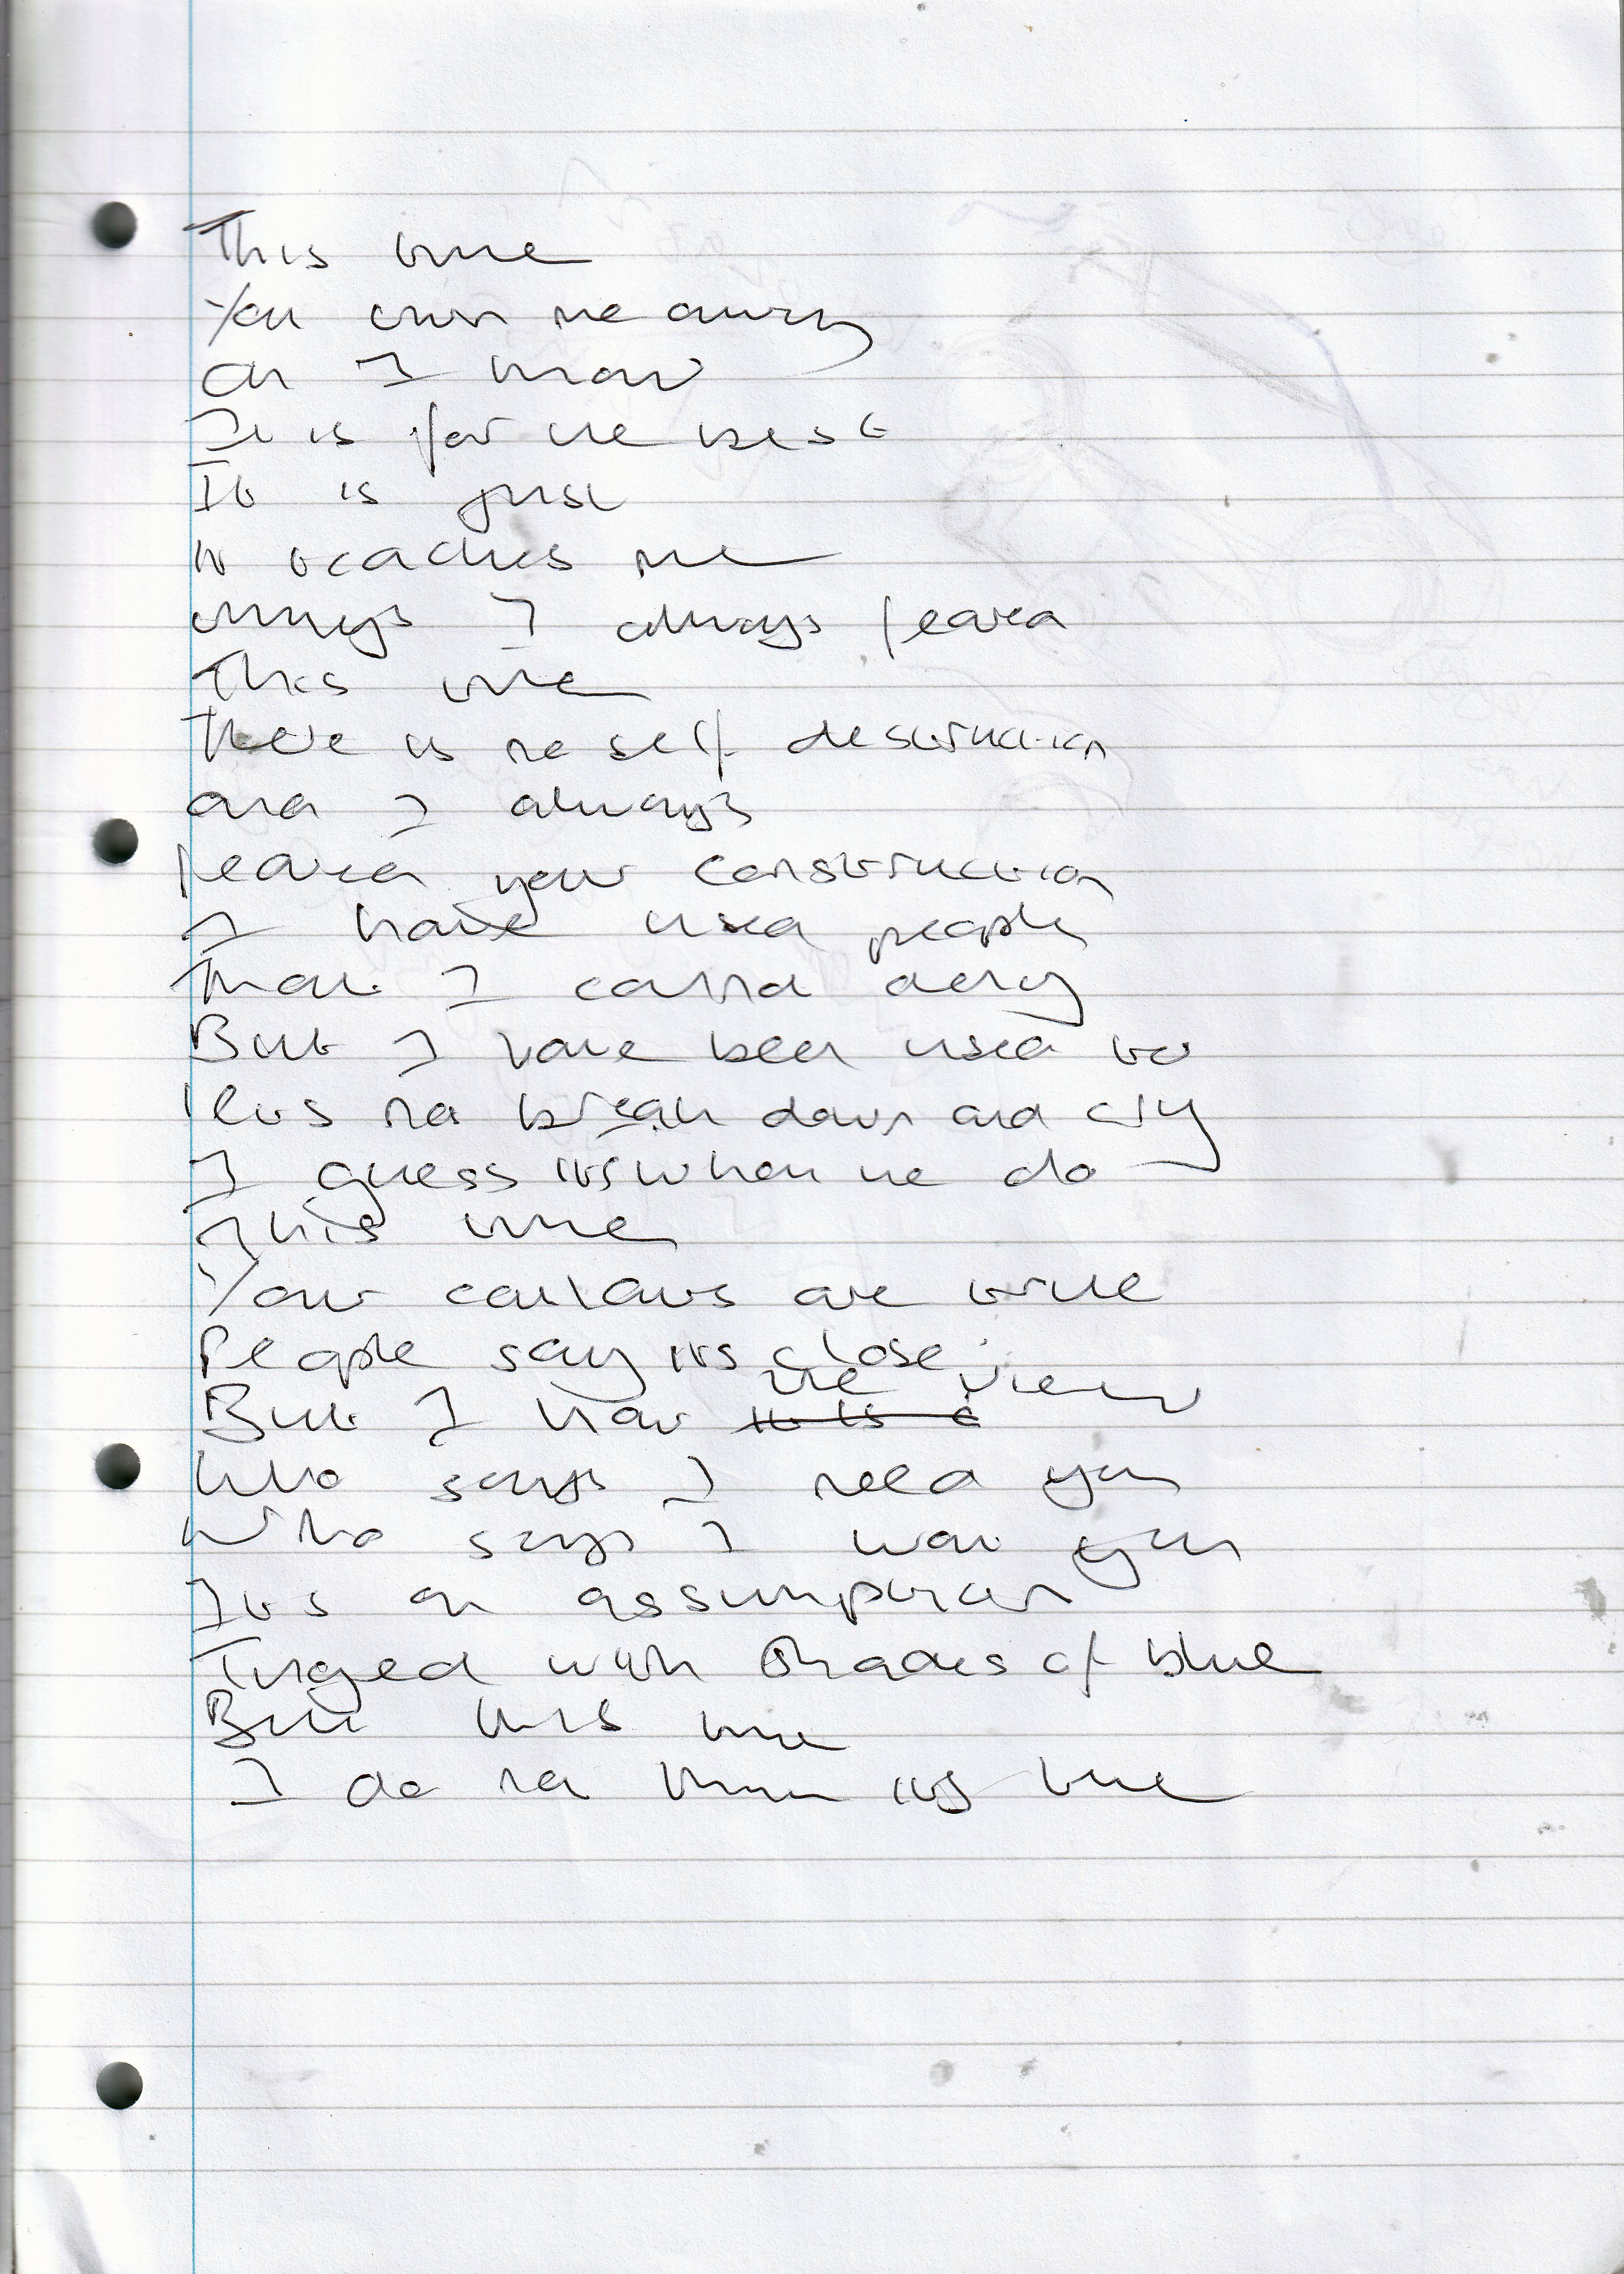 This time
You turn me away
Oh I know
It is for the best
It is just
It teaches me
always I always feared
This time
There is no self destruction
and I always
feared your construction
I have used people
That I cannot deny
But I have been used to
lets not break down and cry
I guess its what we do
This time
Your colours are true
People say its close
But I know the view
Who says I need you
Who says I want you
Its an assumption
Tinged with Shades of blue
But this time
I do not think its time